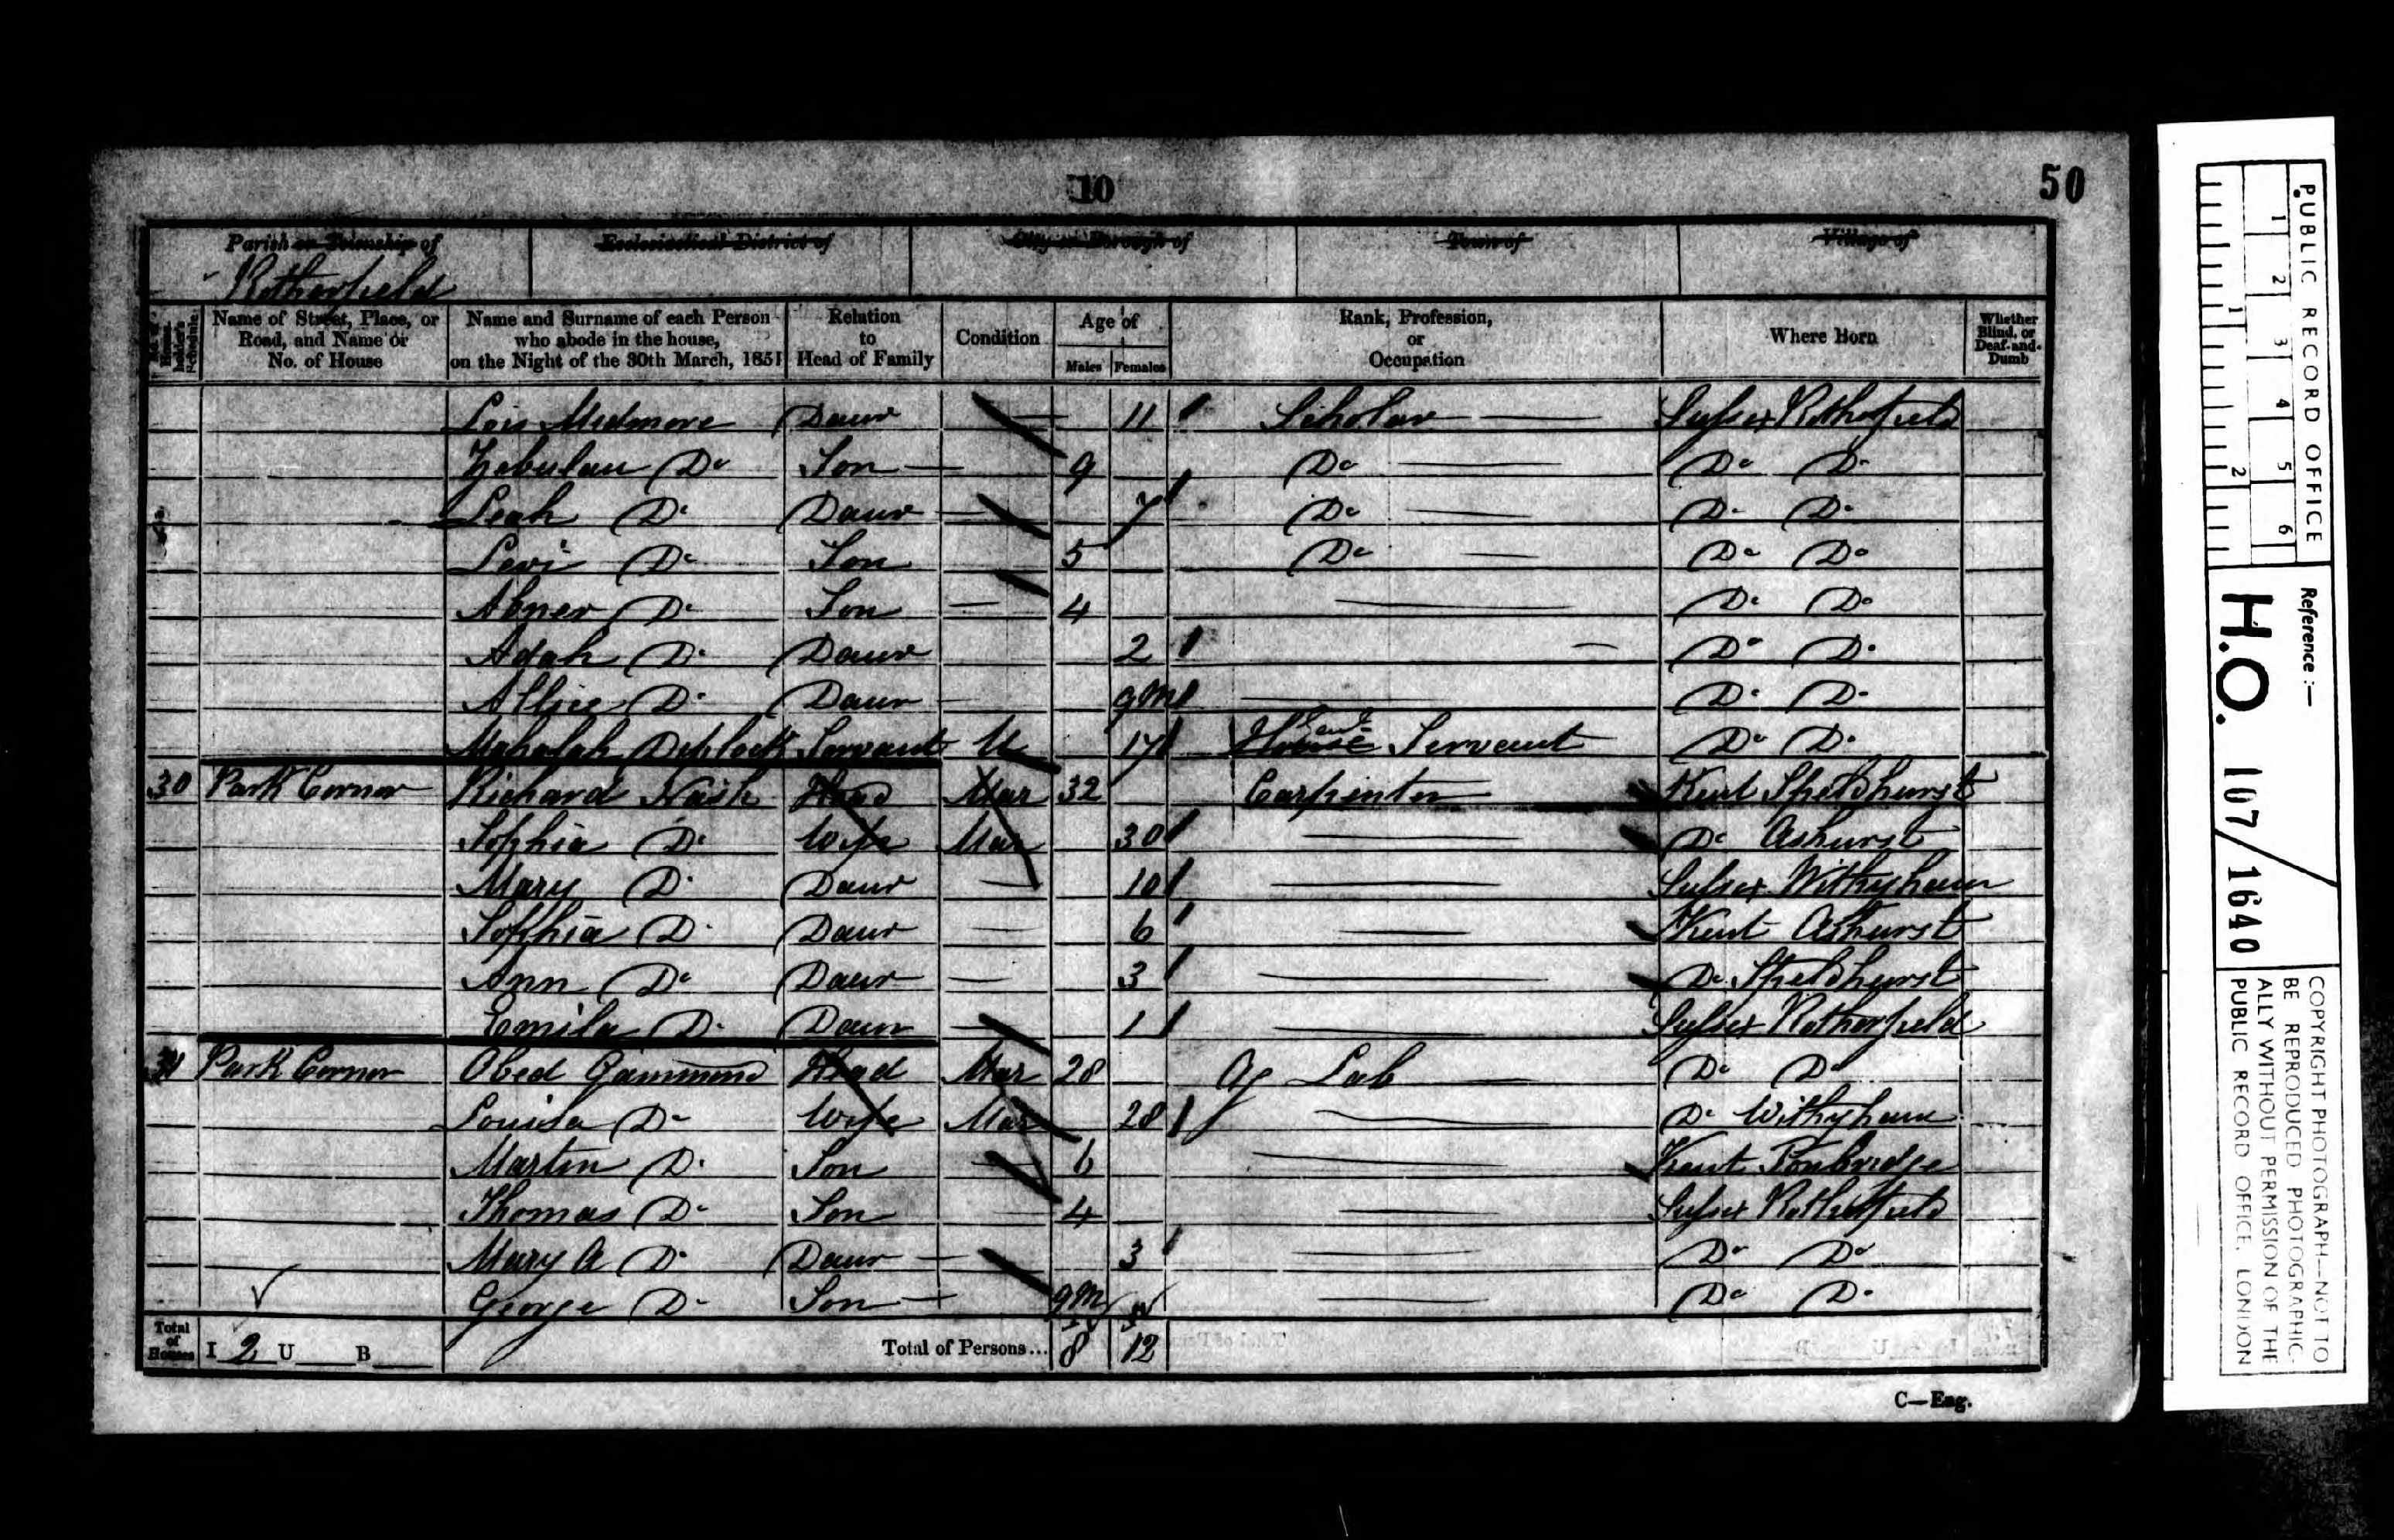 10
50
Parish or Township of
Ecclesiastical District of
City or Borough of
Town of
Village of
Rotherfield
No. of House-holder's Schedule
Name of Street, Place, or Road, and Name or No. of House
Name and Surname of each Person who abode in the house, on the Night of the 30th March, 1851
Relation to Head of Family
Condition
Age of
Males
Females
Rank, Profession, or Occupation
Where Born
Whether Blind, or Deaf-and-Dumb
Lois Midmore Daur 11 Scholar Sussex Rotherfield
Zebulan Do Son 9 Do Do Do
Leah Do Daur 7 Do Do Do
Levi Do Son 5 Do Do Do
Abner Do Son 4 Do Do
Adah Do Daur 2 Do Do
Allice Do Daur 9M Do Do
Mahalah Diplock Servant U 17 House Servant Do Do
30 Park Corner Richard Nash Head Mar 32 Carpenter Kent Speldhurst
Sophia Do Wife Mar 30 Do Ashurst
Mary Do Daur 10 Sussex Withyham
Sophia Do Daur 6 Kent Ashurst
Ann Do Daur 3 Do Speldhurst
Emila Do Daur 1 Sussex Rotherfield
31 Park Corner Obed Gammond Head Mar 28 Ag Lab Do Do
Louisa Do Wife Mar 28 Do Withyham
Martin Do Son 6 Kent Tonbridge
Thomas Do Son 4 Sussex Rotherfield
Mary A Do Daur 3 Do Do
George Do Son 9M Do Do
Total of Houses I 2 U B Total of Persons... 8 12
C—Eng.
PUBLIC RECORD OFFICE
1 2 3 4 5 6
1 2
Reference:—
H.O. 107/1640
COPYRIGHT PHOTOGRAPH—NOT TO
BE REPRODUCED PHOTOGRAPHIC-
ALLY WITHOUT PERMISSION OF THE
PUBLIC RECORD OFFICE, LONDON